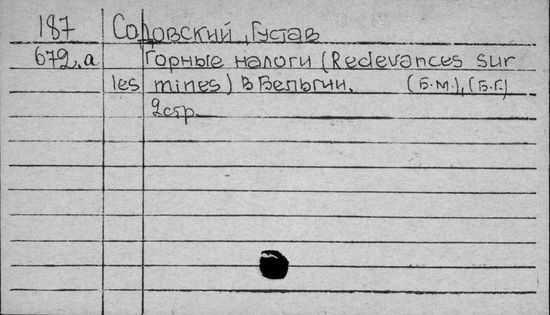 187 Садовский, Густав
672.a Горные налоги (Redevances sur
les mines) в Бельгии. (Б.М.), (Б.Г.)
2стр.